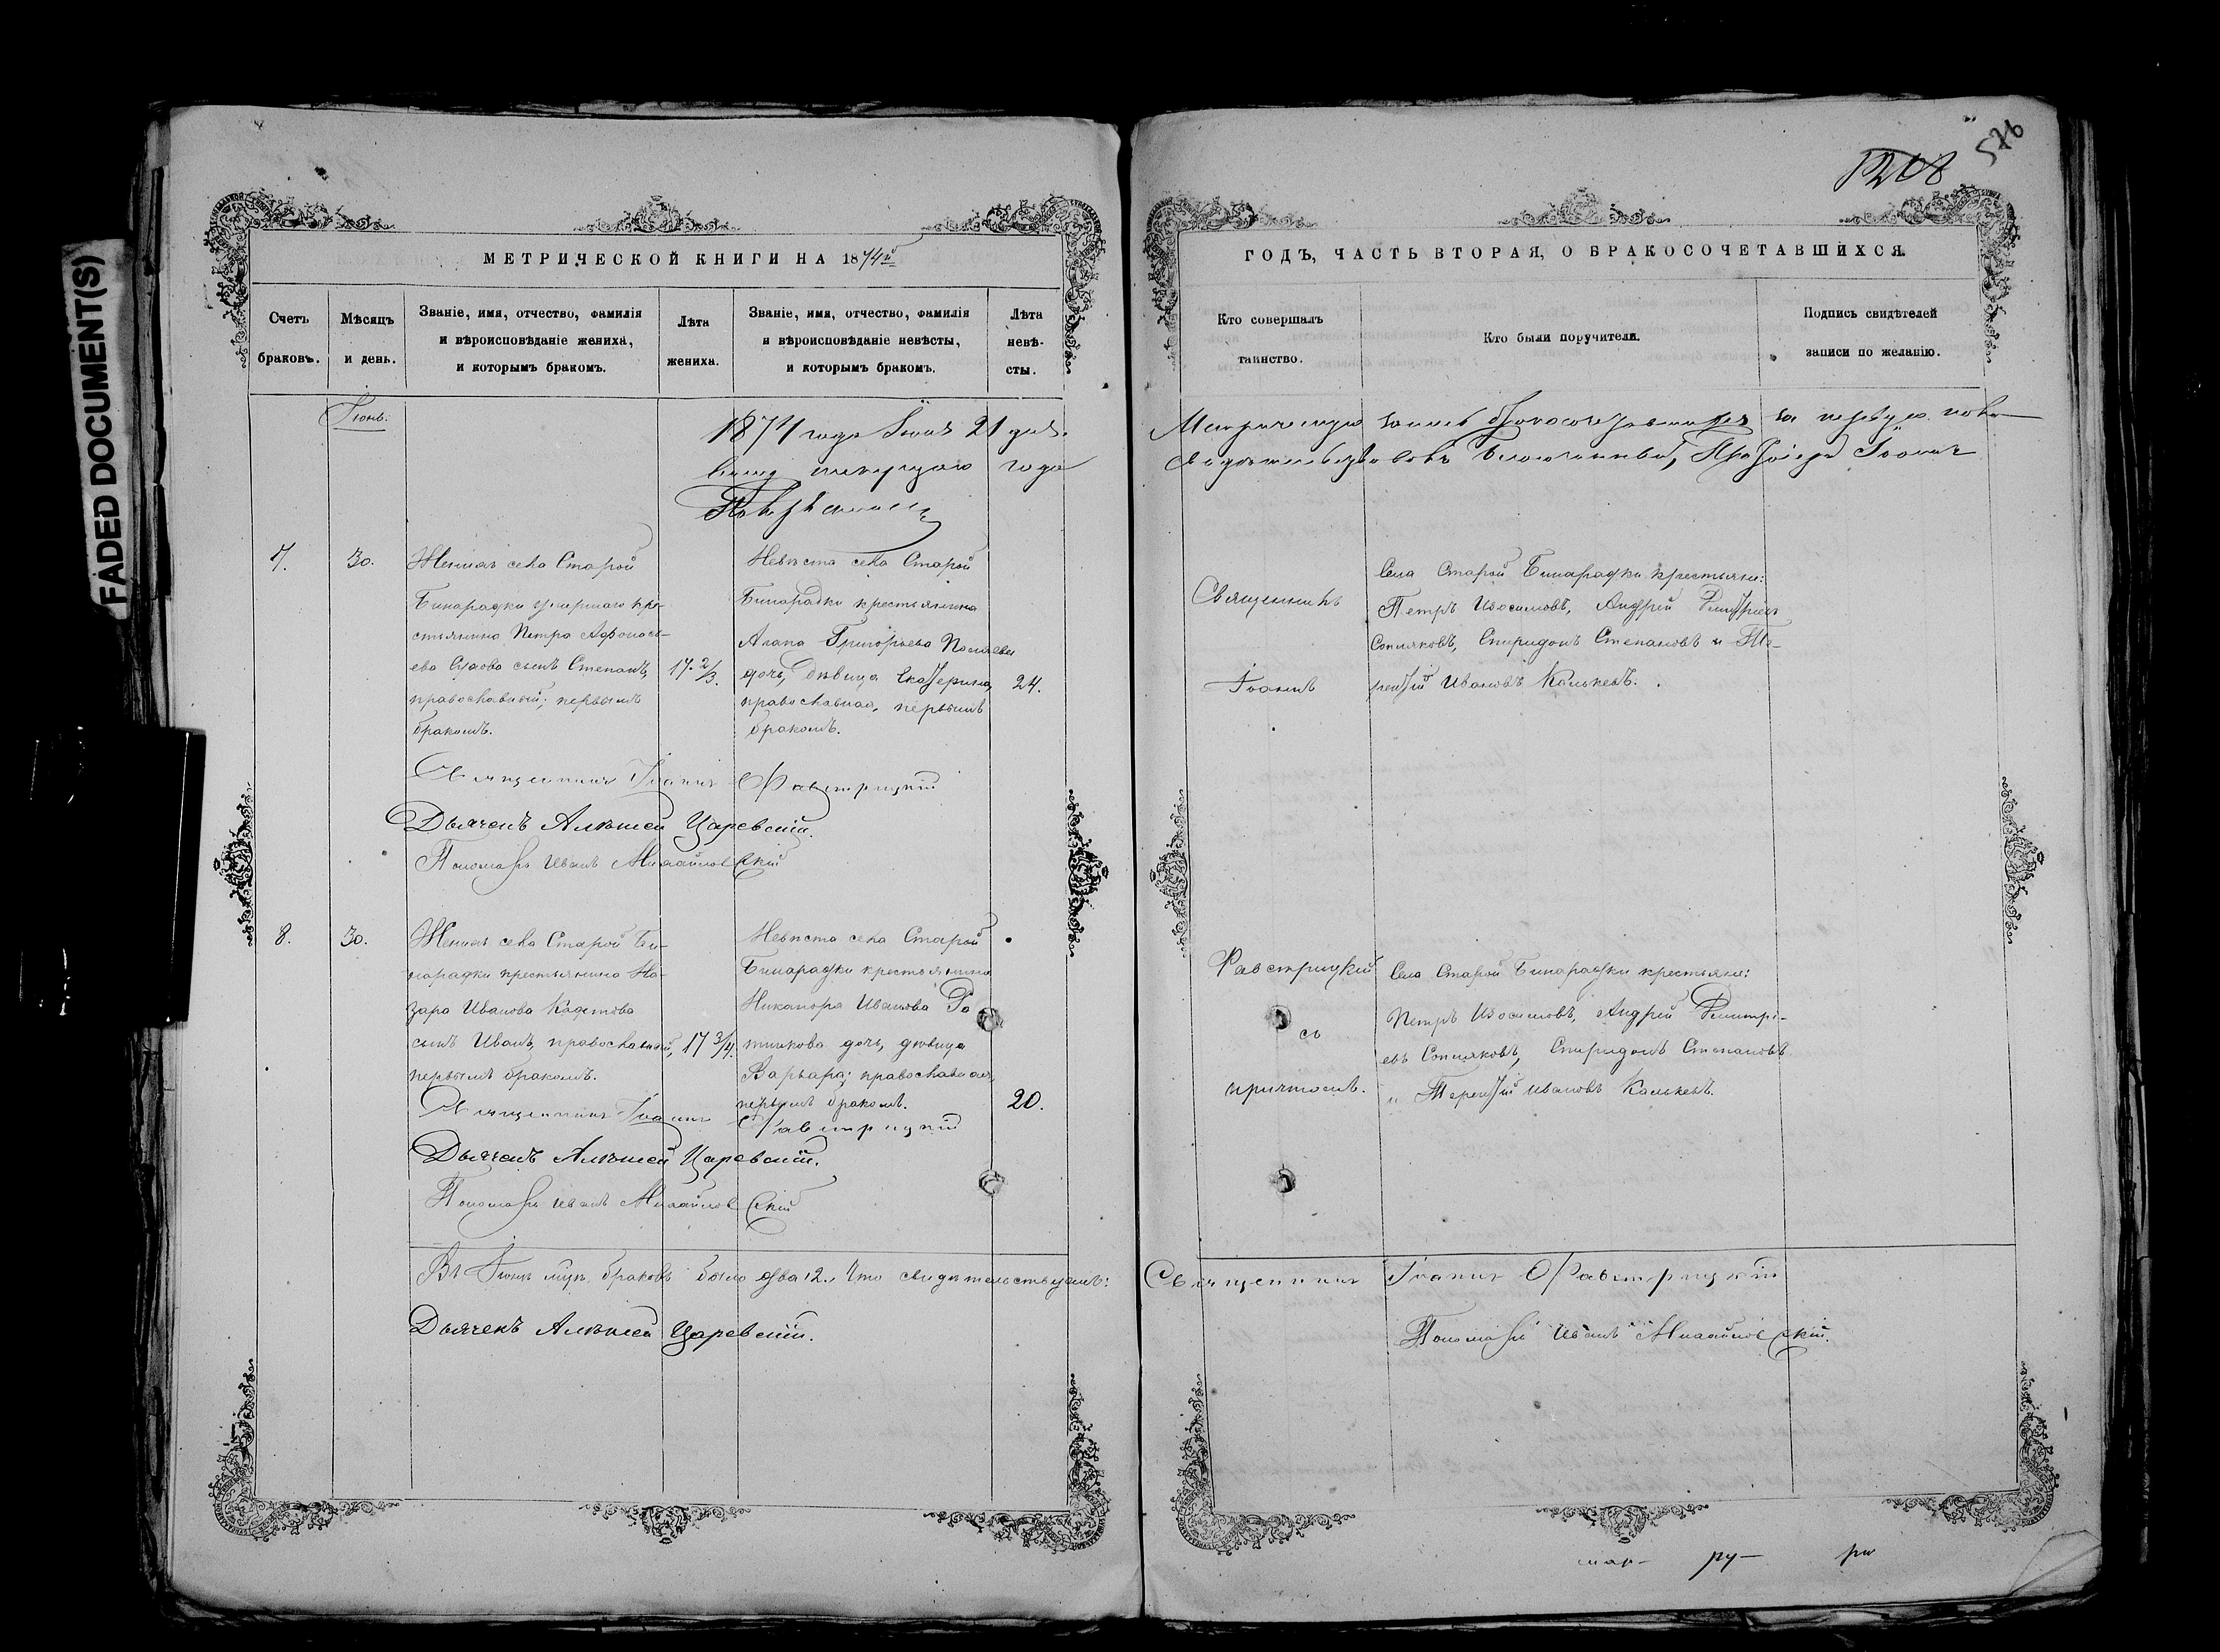 FADED DOCUMENT(S)
МЕТРИЧЕСКОЙ КНИГИ НА 1874й
Счетъ браковъ.
Мѣсяцъ и день.
Званіе, имя, отчество, фамилія
и вѣроисповѣданіе жениха,
и которымъ бракомъ.
Лѣта жениха.
Званіе, имя, отчество, фамилія
и вѣроисповѣданіе невѣсты,
и которымъ бракомъ.
Лѣта невѣ-
сты.
Іюнь.
1874 года Іюля 21 дня.
текущаго года
7.
30.
Женихъ села Старой
Бинарадки умершаго кре-
стьянина Петра Афонась-
ева сынъ Степанъ,
православный; первымъ
бракомъ.
17 2/3.
Невѣста села Старой
Бинарадки крестьянина
Григорьева
дочь, дѣвица Екатерина,
православная, первымъ
бракомъ.
24.
Священникъ Іоаннъ Фавстрицкій
Дьячекъ Алексѣй Царевскій.
Пономарь Иванъ Михайловскій
8.
30.
Женихъ села Старой Би-
нарадки крестьянина На-
зара Иванова
сынъ Иванъ, православный,
первымъ бракомъ.
17 3/4.
Невѣста села Старой
Бинарадки крестьянина
Никанора Иванова Ро
дочь, дѣвица
Варвара; православная,
первымъ бракомъ.
20.
Священникъ Іоаннъ Фавстрицкій
Дьячекъ Алексѣй Царевскій.
Пономарь Иванъ Михайловскій
Въ Іюнѣ мцѣ браковъ было два 2. Что свидѣтельствуемъ:
Дьячекъ Алексѣй Царевскій.
1208
576
ГОДЪ, ЧАСТЬ ВТОРАЯ, О БРАКОСОЧЕТАВШИХСЯ.
Кто совершалъ
таинство.
Кто были поручители.
Подпись свидѣтелей
записи по желанію.
запись бракосочетавшихся за первую поло
Іоаннъ
Священникъ
Іоаннъ
Фавстрицкій
съ
причтомъ.
Села Старой Бинарадки крестьяне:
Петръ Изосимовъ, Андрей Димитріевъ
Сопляковъ, Спиридонъ Степановъ и Те-
рентій Ивановъ
Села Старой Бинарадки крестьяне:
Петръ Изосимовъ, Андрей Димитрі-
евъ Сопляковъ, Спиридонъ Степановъ
и Терентій Ивановъ
Священникъ Іоаннъ Фавстрицкій
Пономарь Иванъ Михайловскій.
ру-